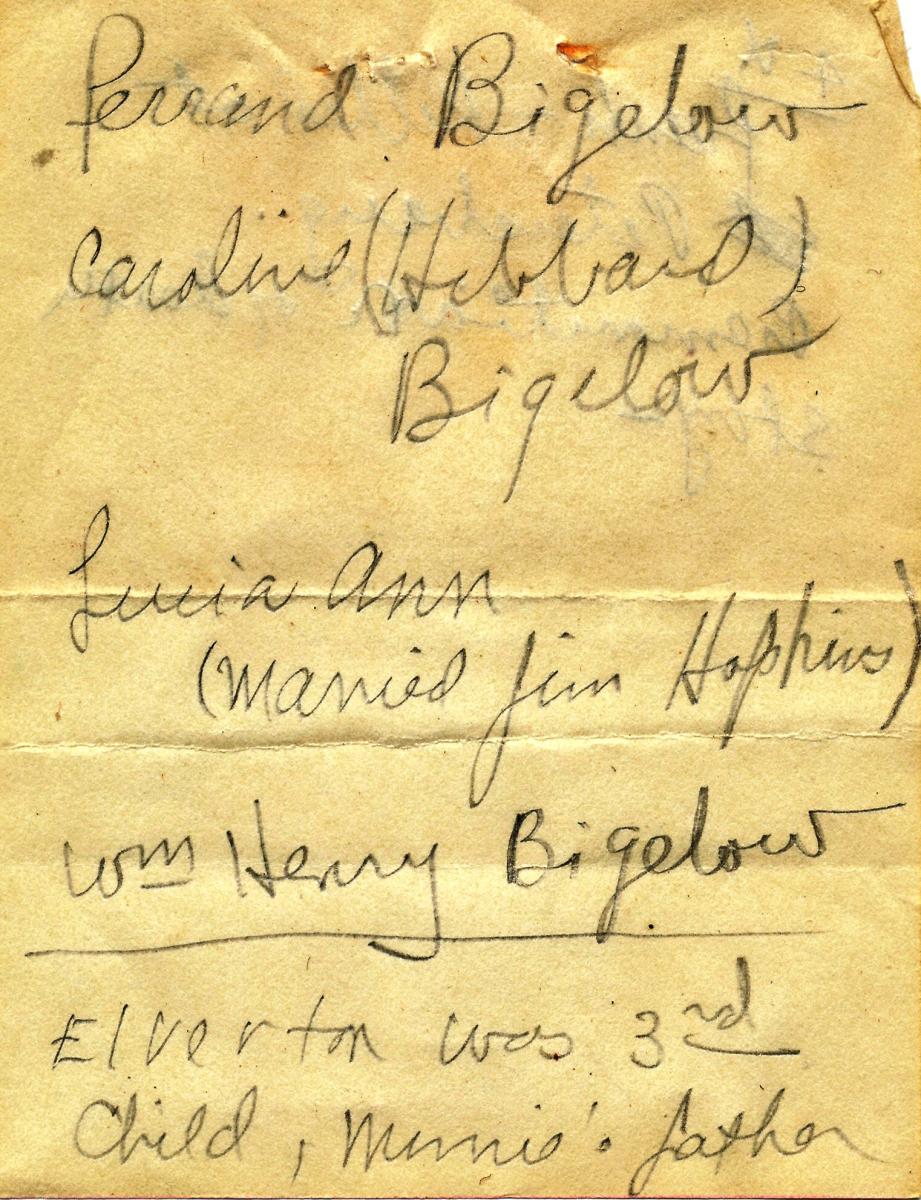 Perrand Bigelow
Caroline (Hebbard)
Bigelow
Lucia Ann
(Married Jim Hopkins)
Wm Henry Bigelow
Elverton was 3rd
Child, father